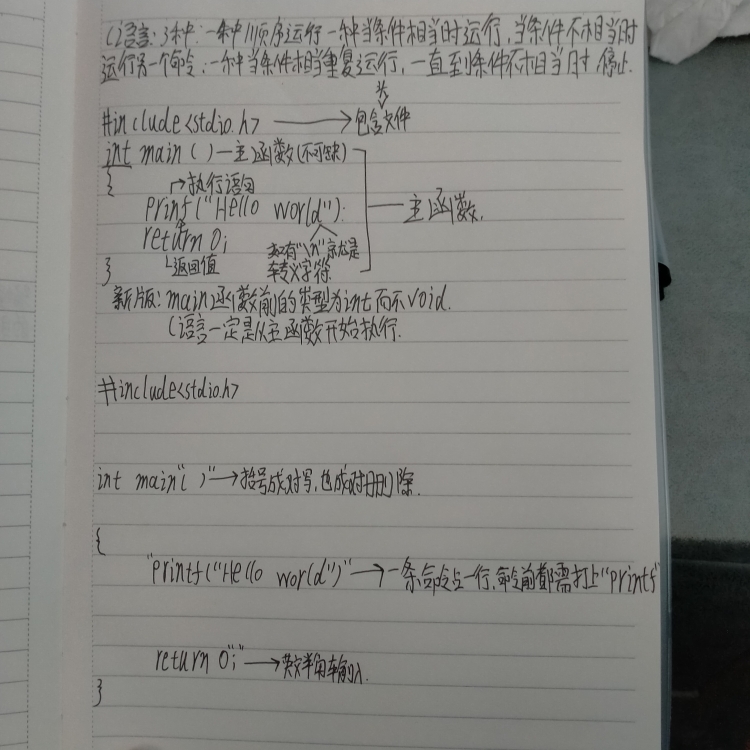 C语言:3种:一种顺序运行一种当条件相当时运行,当条件不相当时
运行另一个命令;一种当条件相当重复运行,一直到条件不相当时,停止.
#include<stdio.h> → 包含文件
int main ( )—主函数(不可缺)
{ 执行语句
printf("Hello world"); 主函数.
return 0; 如有"\n"京尤是
返回值 转义字符
}
新版:main函数前的类型为int而不void.
C语言一定是从主函数开始执行.
#include<stdio.h>
int main"( )"→括号成对写,也成对册刂除.
{
"printf("Hello world")"→一条命令占一行,命令前都需打上"printf"
return 0";"→英文半角车输入.
}